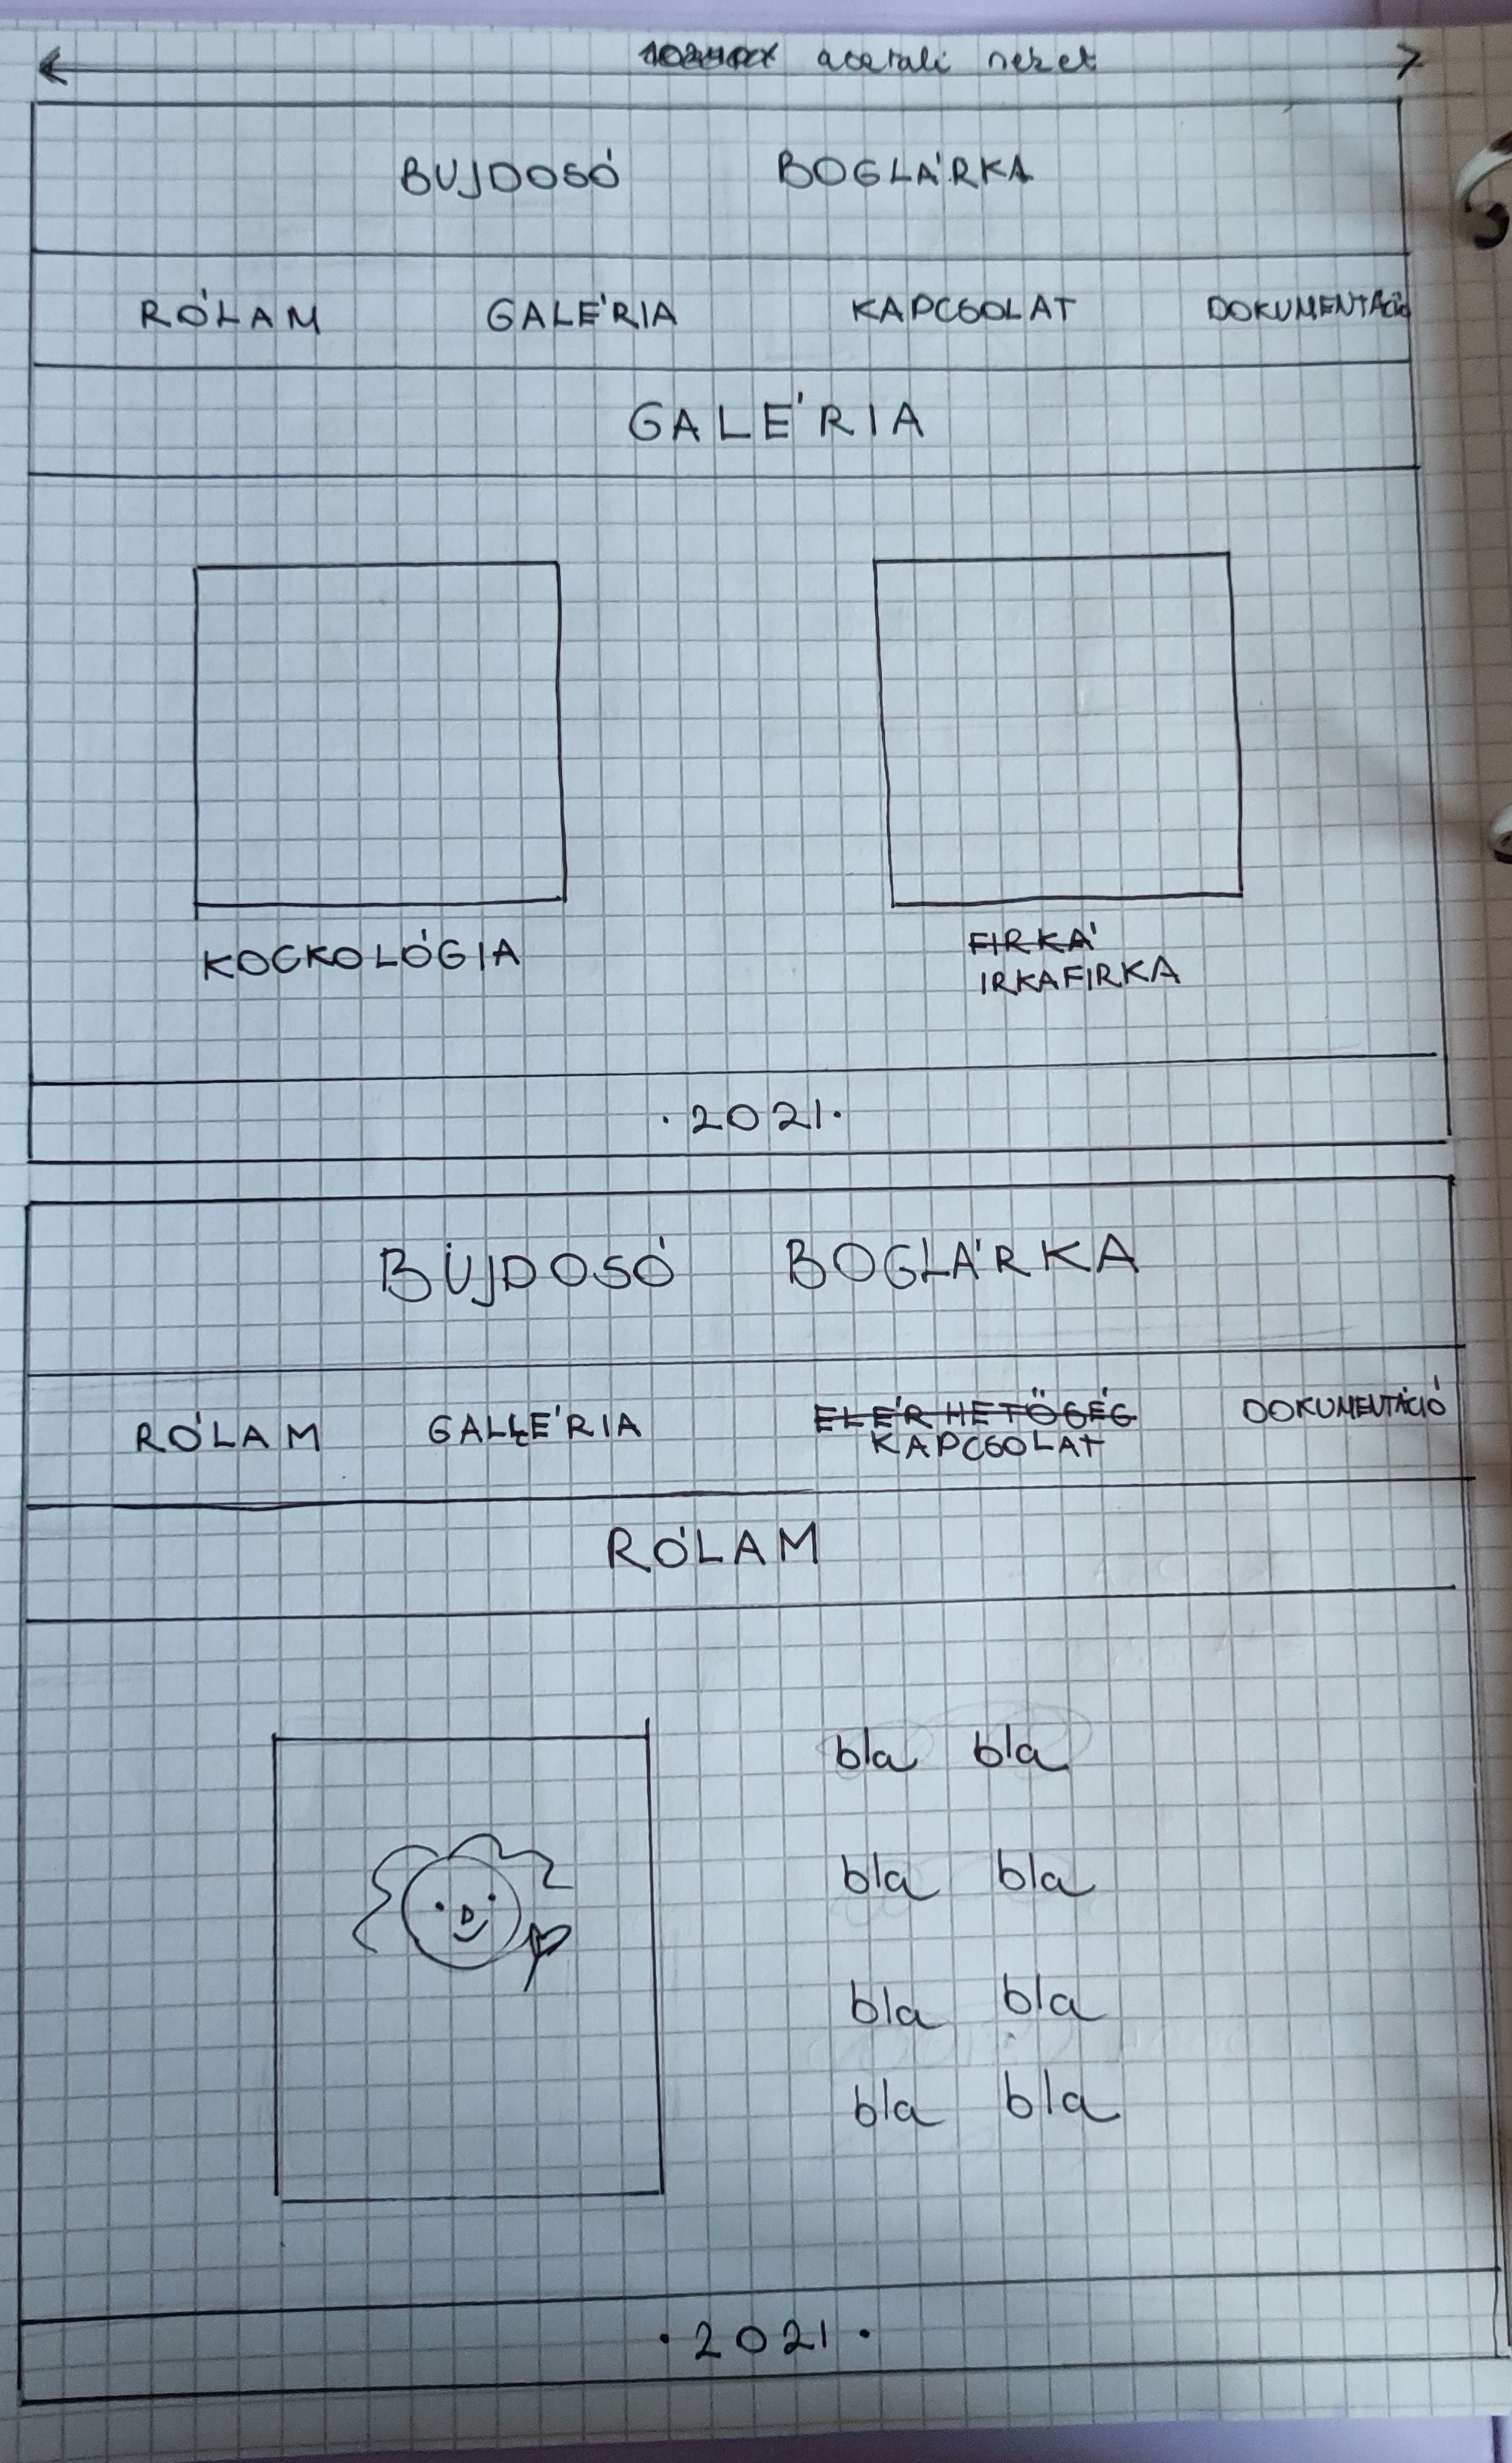 asztali nézet
BUJDOSÓ BOGLÁRKA
RÓLAM GALÉRIA KAPCSOLAT DOKUMENTÁCIÓ
GALÉRIA
KOCKOLÓGIA
FIRKA
IRKAFIRKA
·2021·
BUJDOSÓ BOGLÁRKA
RÓLAM GALÉRIA ELÉRHETŐSÉG DOKUMENTÁCIÓ
KAPCSOLAT
RÓLAM
bla bla
bla bla
bla bla
bla bla
·2021·